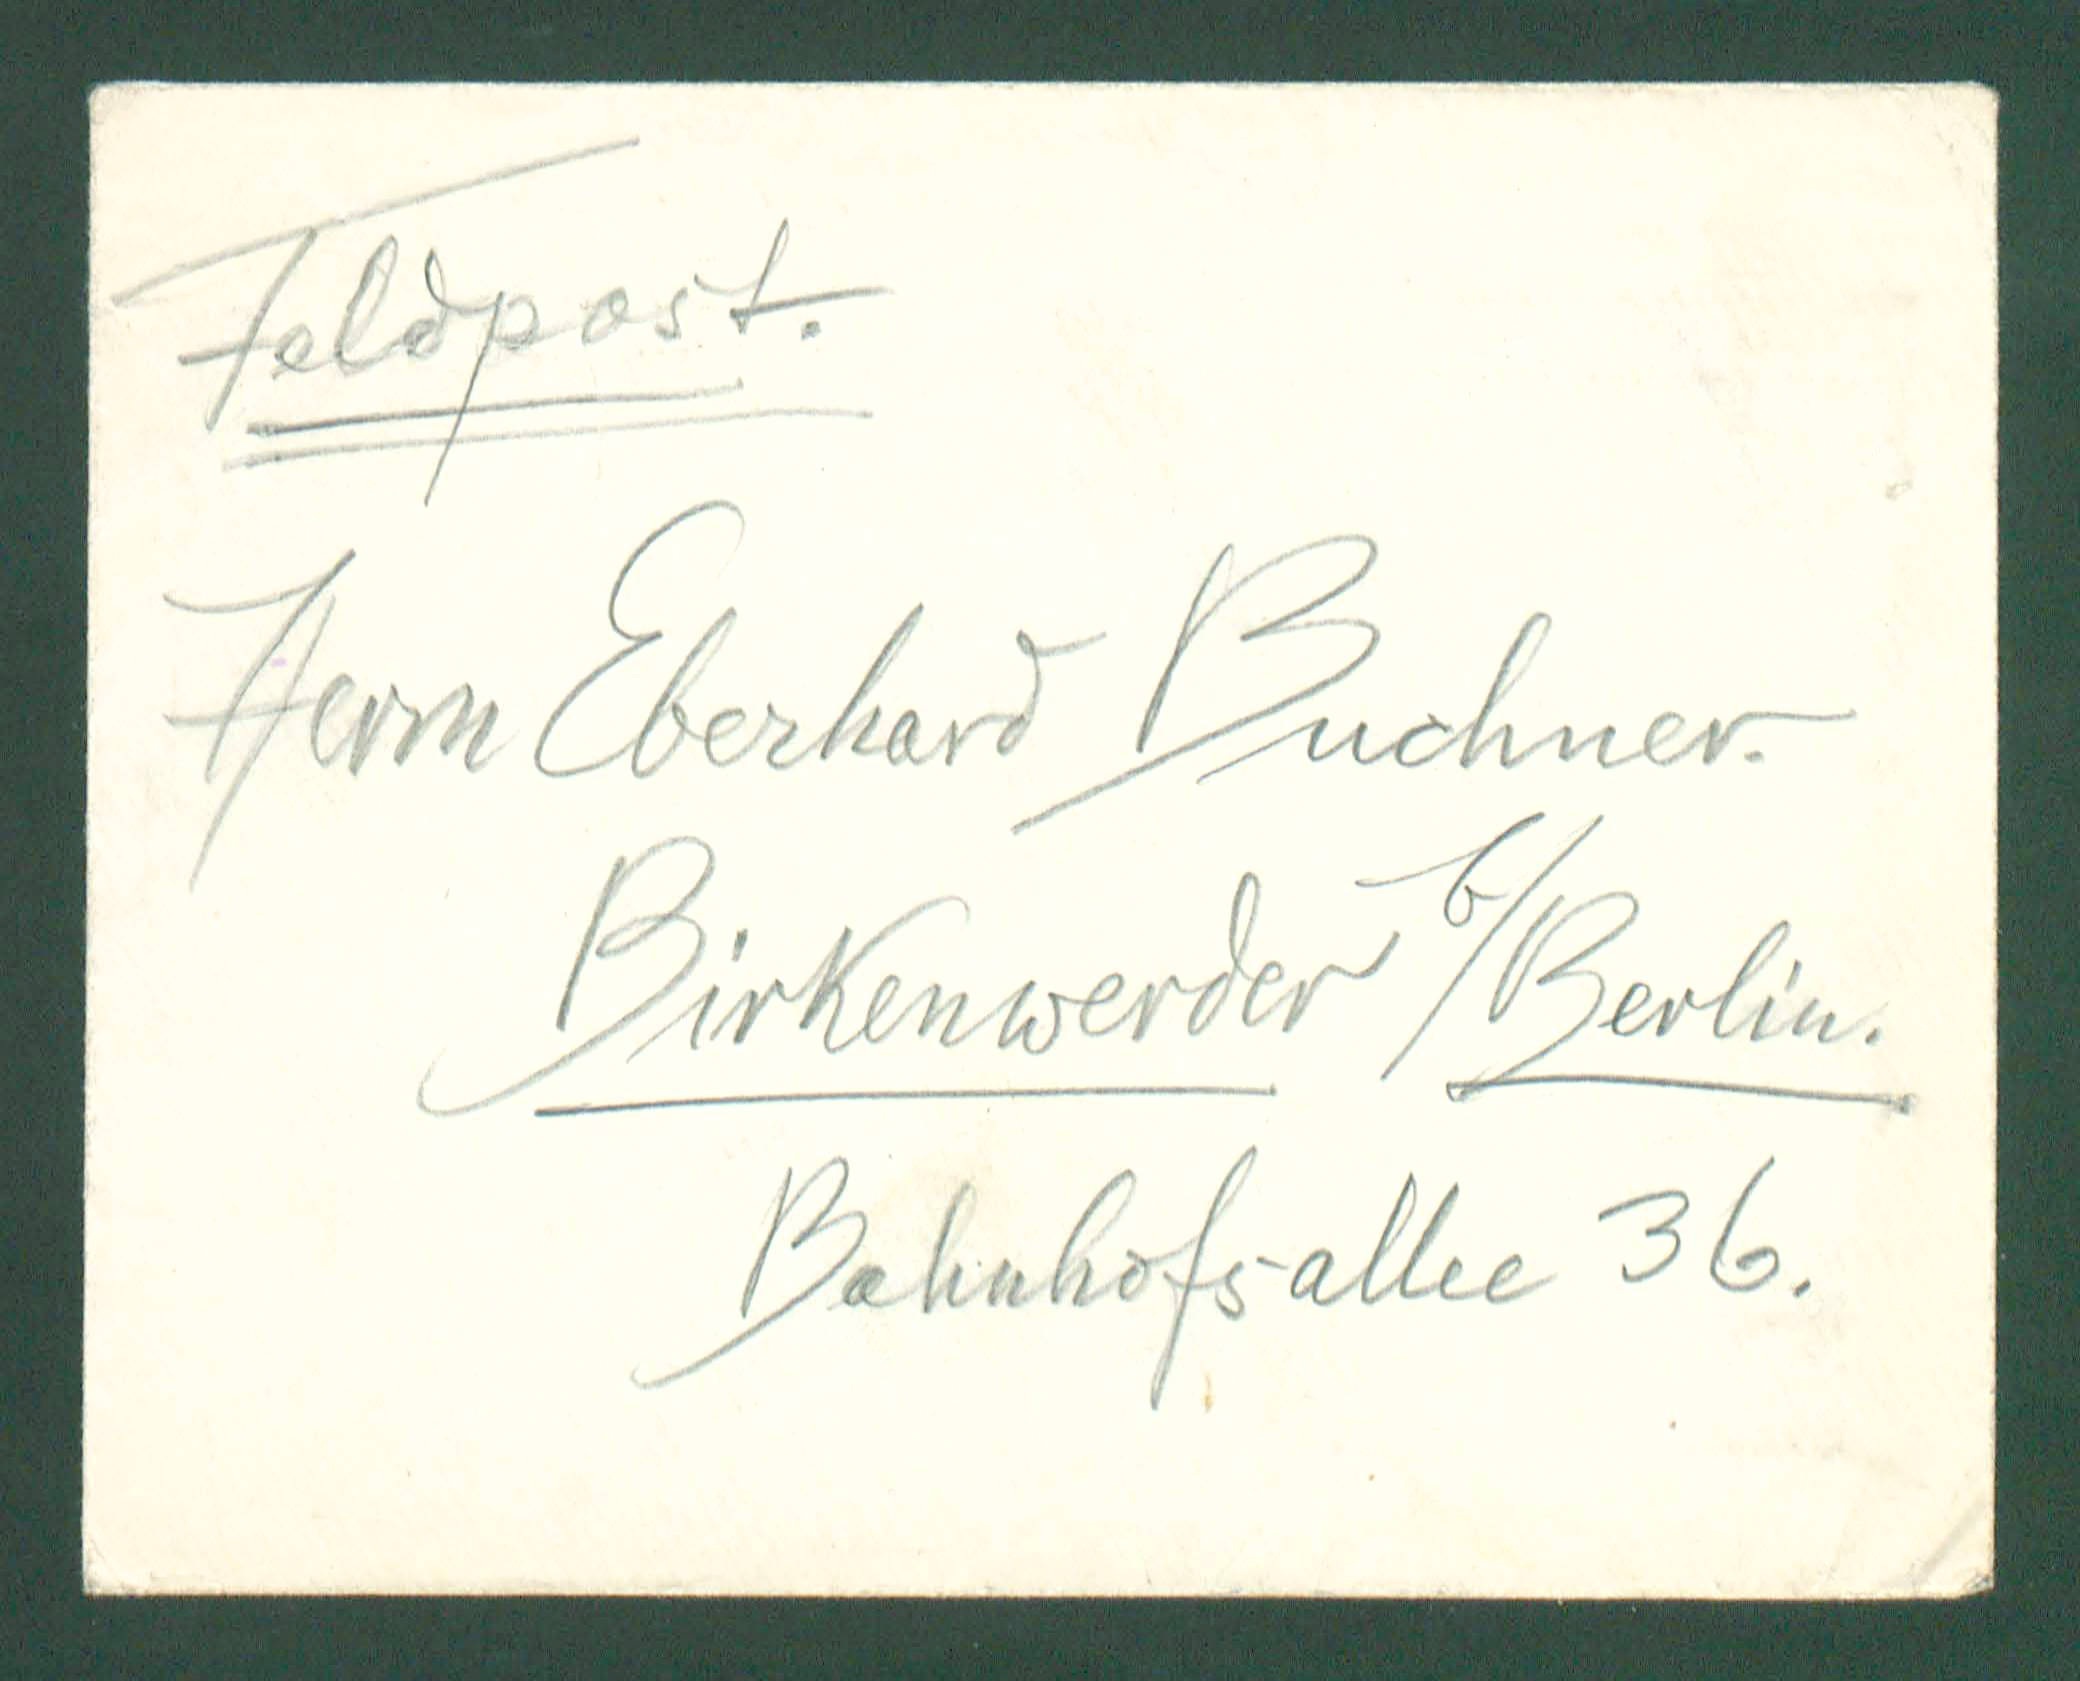 Feldpost.
Herrn Eberhard Buchner.
Birkenwerder b/Berlin.
Bahnhofs-allee 36.